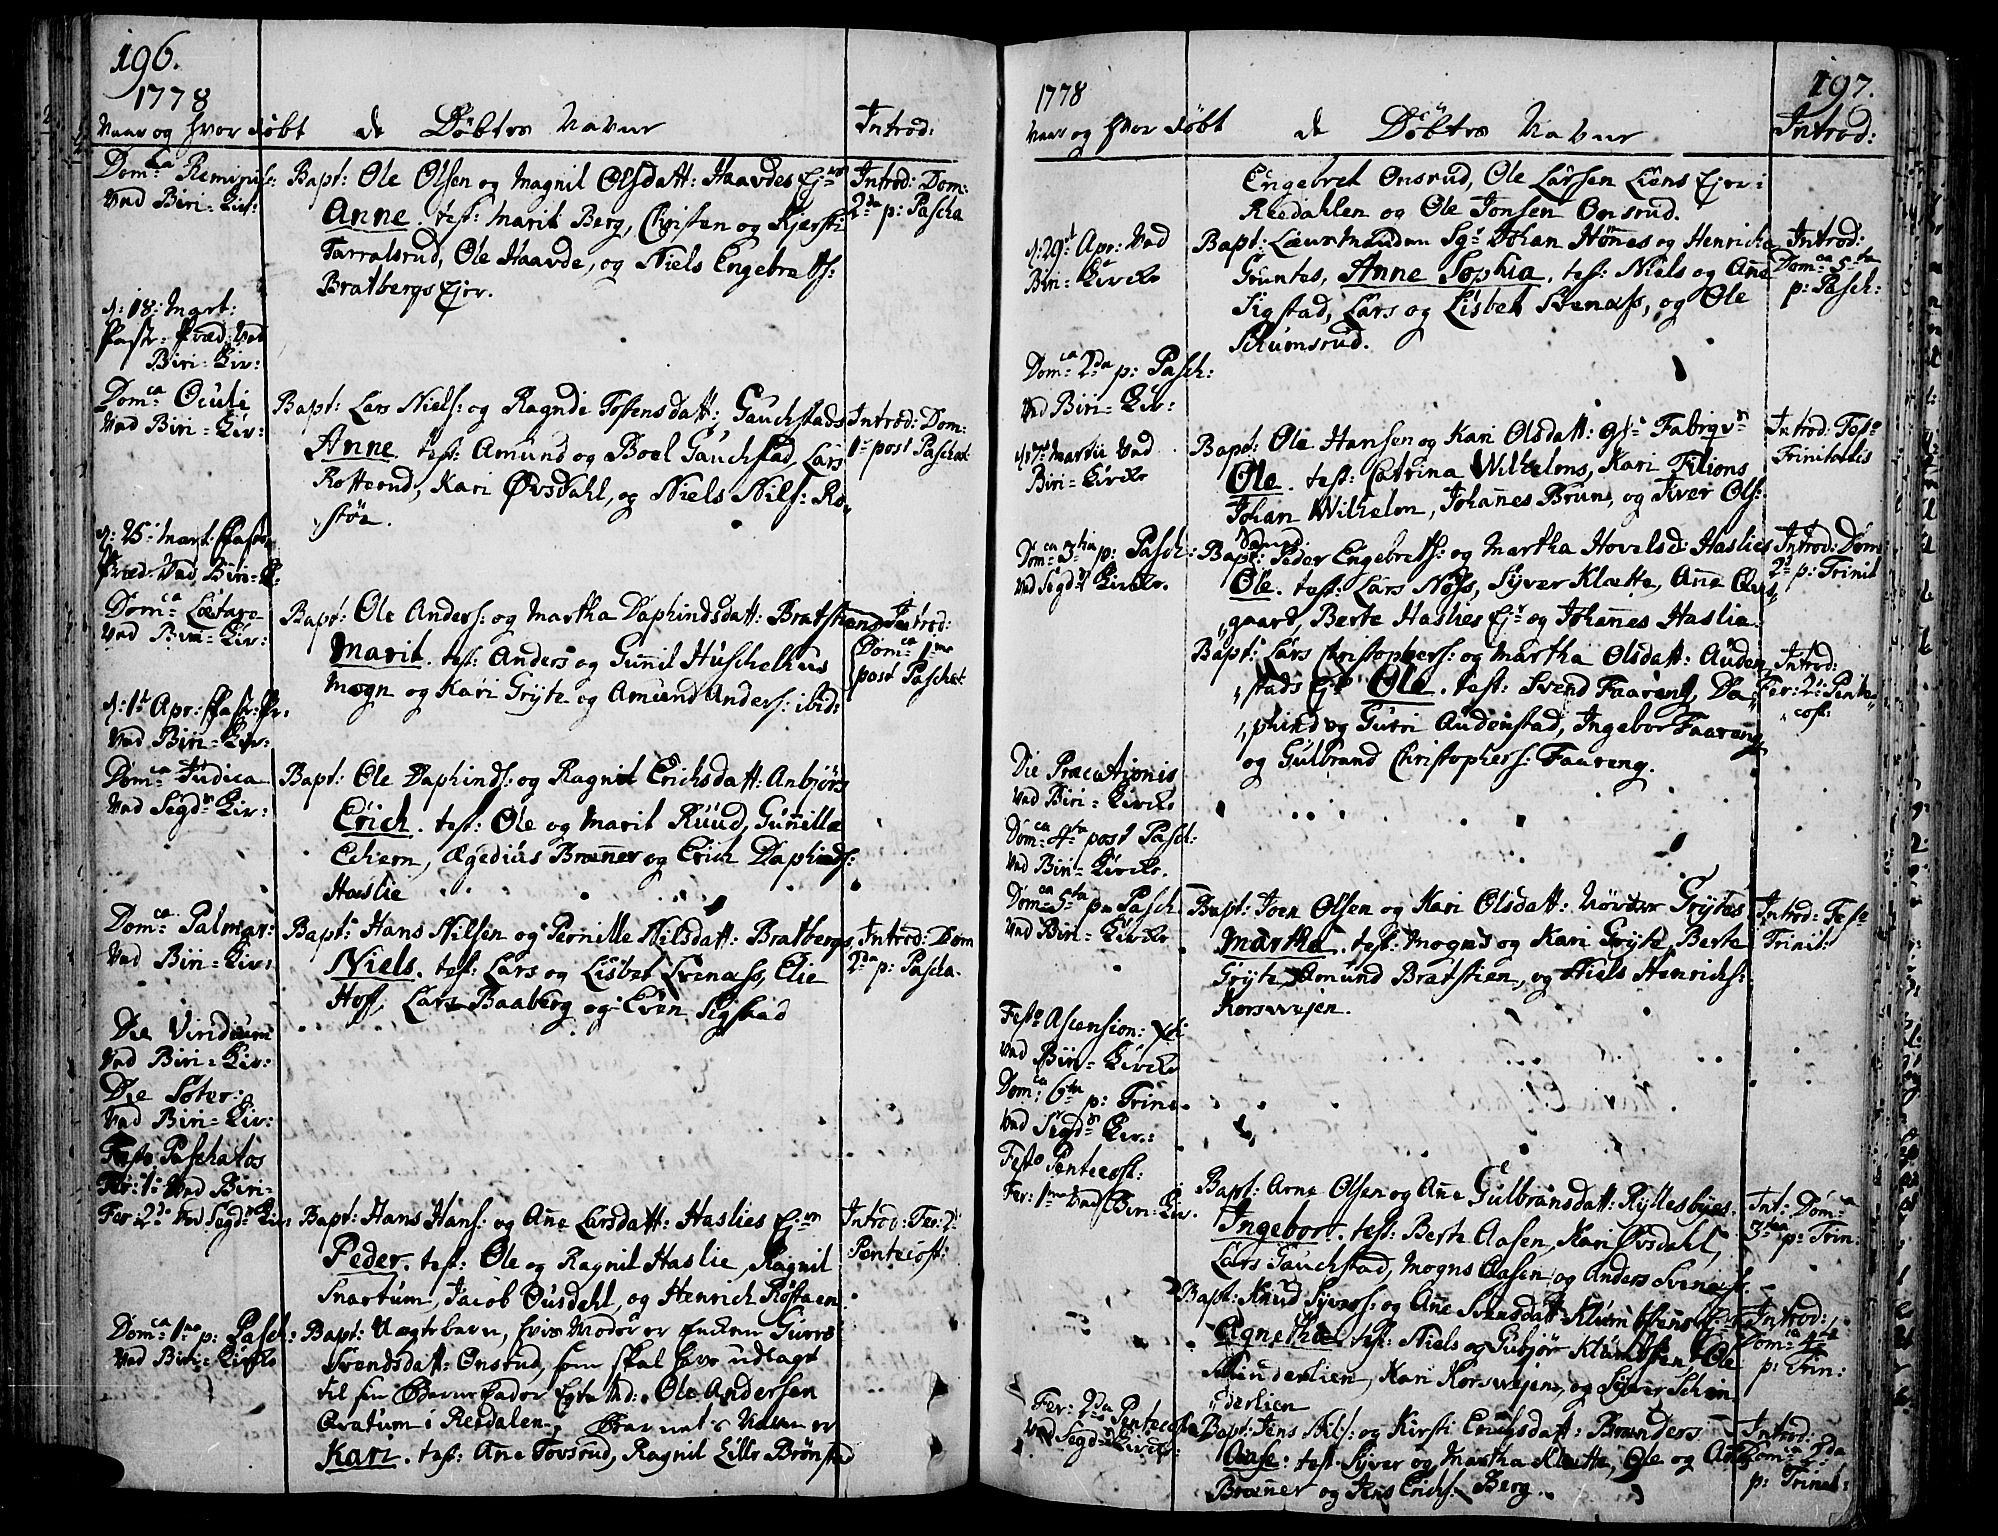 196.
1778
Naar og hvor døbt de Døbtes Navne Introd:
Dom:ca Reminis:
ved Biri-Kir:
Bapt: Ole Olsen og Magnil Olsdatt: Haavdes Ej:
Anne. test: Marit Berg, Christen og Kjersti
Tarralsrud, Ole Haavde, og Niels Engebretts:
Bratbergs Ejer.
Introd: Dom:
2da p: Pascha
d: 18: Mart:
Past: Præd: ved
Biri-Kir:
Dom:ca Oculi
ved Biri-Kir:
Bapt: Lars Niels: og Ragnde Tostensdatt: Gauchstads
Anne. test: Amund og Boel Gauchstad, Lars
Rotterud, Kari Øvsdahl, og Niels Nils: Ro-
støe.
Introd: Dom:
1 post Paschat
d: 25: Mart: Past:
Præd: ved Biri-K:
Dom:ca Lætare
ved Biri-Kir:
Bapt: Ole Anders: og Martha Daphindsdatt: Bratstiens
Marit. test: Anders og Gunnil Huschelhus
Mogn og Kari Gryte og Amund Anders: ibid:
Introd:
Dom:ca 1ma
post Paschat:
d: 1t Apr: Past: Pr:
ved Biri-Kir:
Dom:ca Judica
ved Segd: Kir:
Bapt: Ole Daphinds: og Ragnil Erichsdatt: Anbjørs
Erich. test: Ole og Marit Ruud, Gunnilla
Echern, Ægedius Brænner og Erich Daphinds:
Haslie
Dom:ca Palmar:
ved Biri-Kir:
Bapt: Hans Nilsen og Pernille Nilsdatt: Bratbergs
Niels. test: Lars og Lisbet Svenæss, Elie
Hoff, Lars Baaberg og Even Sigstad
Introd: Dom
2da p: Pascha.
Die Viridium
ved Biri-Kir:
Die Soter:
ved Biri-Kir:
Festo Paschatos
Fer: 1: ved Biri-
Fer: 2da ved Segd: Kir
Bapt: Hans Hans: og Ane Larsdatt: Haslies Ej:
Peder. test: Ole og Ragnil Haslie, Ragnil
Snartum, Jacob Øusdahl, og Henrich Røstøen
Introd: Fer: 2:
Pentecost:
Dom:ca 1ma p: Pasch:
ved Biri-Kirke
Bapt: Uægtebarn, hvis Moder er Guroe
Svendsdatt: Onsrud, som skal have udlagt
til sin Barnefader Ole Andersen
i Reedalen; Barnets Navn er
Kari. test: Ane Tovsrud, Ragnil Lille Brønstad
197.
1778
Naar og hvor døbt de Døbtes Navne Introd:
Engebret Onsrud, Ole Larsen Liens Ejer:
Reedahlen og Ole Jonsen Onsrud.
d: 29t Apr: ved
Biri-Kircke
Bapt: Sgr Johan Hønes og Henricka
Gruntes, Anne Sophia. test: Niels og Ane
Sigstad, Lars og Lisbet Svenæss, og Ole
Schumsrud.
Introd:
Dom:ca 5ta
p: Pasch:
Dom:ca 2da p: Pasch:
ved Biri-Kir:
ved
Biri-Kircke
Bapt: Ole Hansen og Kari Olsdatt: Fabriqv:
Ole. test: Catrina Wilhelms, Kari Filions
Johan Wilhelm, Johannes Brun, og Iver Ols:
Introd: Festo
Trinitatis
Dom:ca 3tia p: Pasch:
ved Segd: Kircke.
Bapt: Peder Engebretts: og Martha Hovelsd: Haslies
Ole. test: Lars Nøss, Syver Klætte, Ane Ovs-
gaard, Berte Haslies Ej: og Johannes Haslie.
Introd: Dom:
2d p: Trinit
Bapt: Lars Christophers: og Martha Olsdatt: Auden-
stads Ej: Ole. test: Svend Faareng, Da-
phind og Gurri Audenstad, Ingebor Faareng,
og Gulbrand Christophers: Faareng.
Introd:
Fer: 2: Pente-
cost:
Die Precationis
ved Biri-Kircke
Dom:ca 4ta post Pasch:
ved Biri-Kircke.
Dom:ca 5ta p: Pasch
ved Biri-Kircke
Bapt: Joen Olsen og Kari Olsdatt: Nørder Grytes
Martha. test: Mogns og Kari Gryte, Berte
Gryte, Amund Bratstien, og Niels Henrichs:
Korsvejen.
Introd: Festo
Trinit:
Festo Ascension: Xsti
ved Biri-Kircke
Dom:ca 6ta p: Trini.
ved Segd: Kir:
Festo Pentecost:
Fer: 1ma ved Biri-Kir.
Bapt: Arne Olsen og Ane Gulbransdatt: Ryllesbyes
Ingebor. test: Berte Aasen, Kari Øvsdahl,
Lars Gauchstad, Mogns Aasen, og Anders Svenæss.
Int: Dom:
3tia p: Trin.
Bapt: Knud Syvers: og Ane Svensdatt:
Agnetha. test: Niels og Gubjør Klumsten, Ole
Sünderlien, Kari Korsvejen, og Syver Schon-
derlien
Introd:
Dom:ca 4ta
p: Trin:
Fer: 2da Pentecosta
ved Segd: Kircke:
Bapt: Jens Nils: og Kirsti Erichsdatt: Brænders
Aase: test: Syver og Martha Klætte, Ole og Ane
Brænner og Jens Erichs: Berg.
Introd:
Dom:ca 2da
p: Trinit: